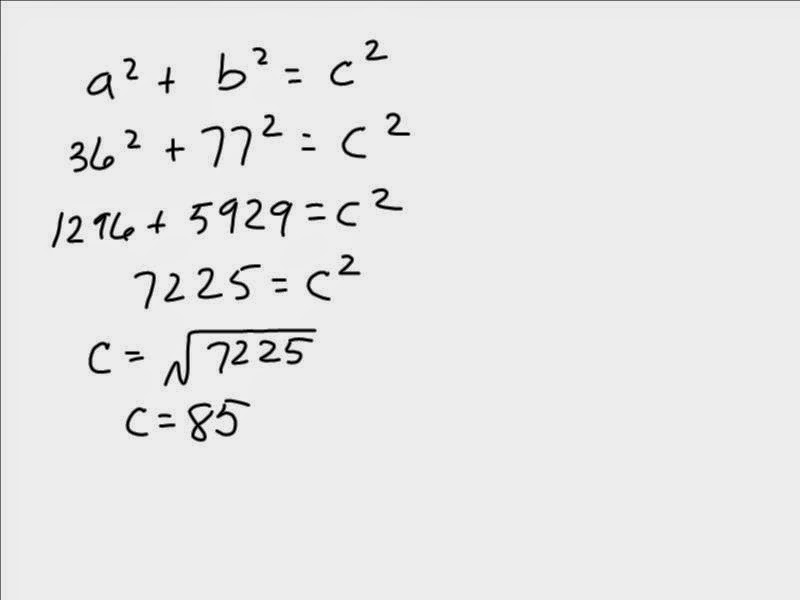 a² + b² = c²
36² + 77² = c²
1296 + 5929 = c²
7225 = c²
c = √7225
c = 85